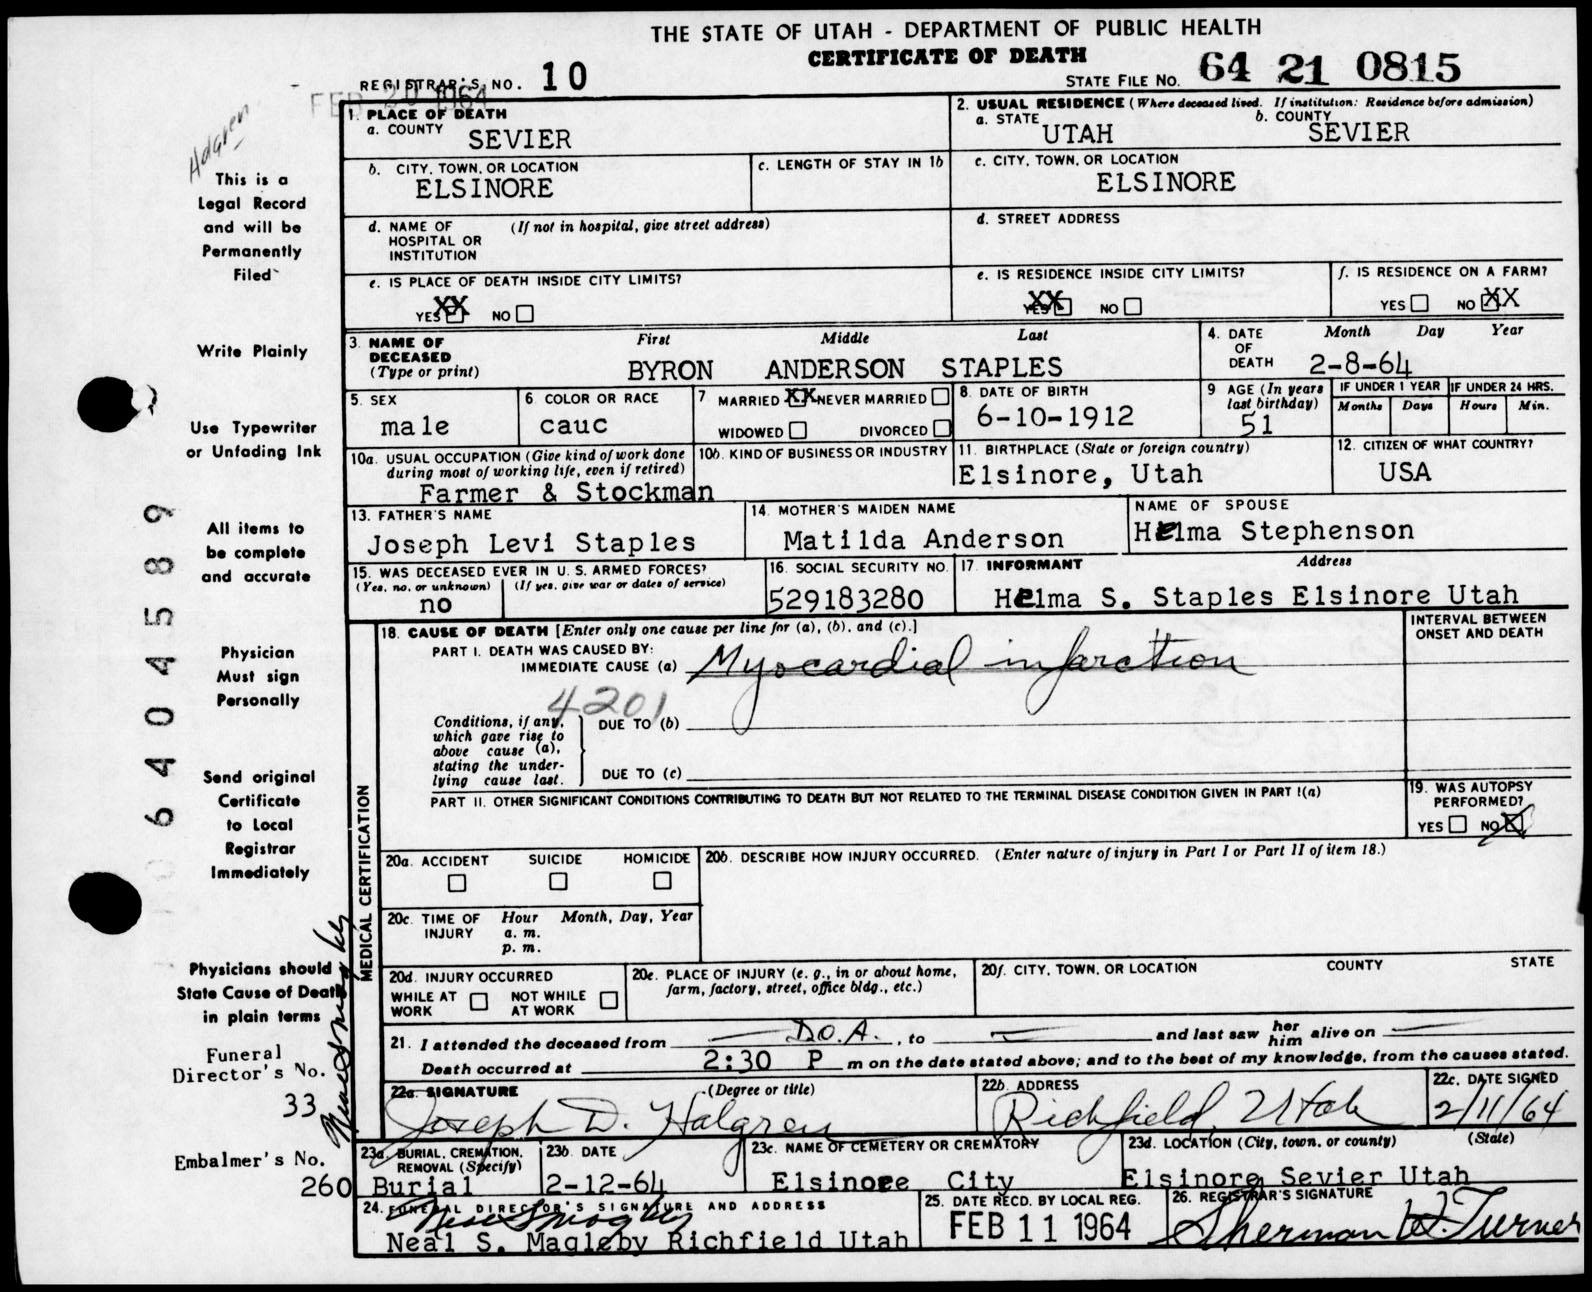 THE STATE OF UTAH - DEPARTMENT OF PUBLIC HEALTH
CERTIFICATE OF DEATH
REGISTRAR'S NO. 10
STATE FILE NO. 64 21 0815
FEB 20 1964
Halgren
This is a
Legal Record
and will be
Permanently
Filed
Write Plainly
Use Typewriter
or Unfading Ink
All items to
be complete
and accurate
Physician
Must sign
Personally
Send original
Certificate
to Local
Registrar
Immediately
Physicians should
State Cause of Death
in plain terms
Funeral
Director's No.
33
Embalmer's No.
260
6404589
Neal S. Magleby
1. PLACE OF DEATH
a. COUNTY
SEVIER
2. USUAL RESIDENCE (Where deceased lived. If institution: Residence before admission)
a. STATE b. COUNTY
UTAH SEVIER
b. CITY, TOWN, OR LOCATION
ELSINORE
c. LENGTH OF STAY IN 1b
c. CITY, TOWN, OR LOCATION
ELSINORE
d. NAME OF (If not in hospital, give street address)
HOSPITAL OR
INSTITUTION
d. STREET ADDRESS
e. IS PLACE OF DEATH INSIDE CITY LIMITS?
YES XX NO
e. IS RESIDENCE INSIDE CITY LIMITS?
YES XX NO
f. IS RESIDENCE ON A FARM?
YES NO XX
3. NAME OF DECEASED (Type or print)
First Middle Last
BYRON ANDERSON STAPLES
4. DATE OF DEATH
Month Day Year
2-8-64
5. SEX
male
6. COLOR OR RACE
cauc
7 MARRIED XX NEVER MARRIED
WIDOWED DIVORCED
8. DATE OF BIRTH
6-10-1912
9 AGE (In years last birthday)
51
IF UNDER 1 YEAR IF UNDER 24 HRS.
Months Days Hours Min.
10a. USUAL OCCUPATION (Give kind of work done
during most of working life, even if retired)
Farmer & Stockman
10b. KIND OF BUSINESS OR INDUSTRY
11. BIRTHPLACE (State or foreign country)
Elsinore, Utah
12. CITIZEN OF WHAT COUNTRY?
USA
13. FATHER'S NAME
Joseph Levi Staples
14. MOTHER'S MAIDEN NAME
Matilda Anderson
NAME OF SPOUSE
Helma Stephenson
15. WAS DECEASED EVER IN U. S. ARMED FORCES?
(Yes, no, or unknown) (If yes, give war or dates of service)
no
16. SOCIAL SECURITY NO.
529183280
17. INFORMANT Address
Helma S. Staples Elsinore Utah
MEDICAL CERTIFICATION
18. CAUSE OF DEATH [Enter only one cause per line for (a), (b), and (c).]
INTERVAL BETWEEN
ONSET AND DEATH
PART I. DEATH WAS CAUSED BY:
IMMEDIATE CAUSE (a) Myocardial infarction
4201
Conditions, if any,
which gave rise to
above cause (a),
stating the under-
lying cause last.
DUE TO (b)
DUE TO (c)
PART II. OTHER SIGNIFICANT CONDITIONS CONTRIBUTING TO DEATH BUT NOT RELATED TO THE TERMINAL DISEASE CONDITION GIVEN IN PART I(a)
19. WAS AUTOPSY
PERFORMED?
YES NO X
20a. ACCIDENT SUICIDE HOMICIDE
20b. DESCRIBE HOW INJURY OCCURRED. (Enter nature of injury in Part I or Part II of item 18.)
20c. TIME OF INJURY
Hour Month, Day, Year
a. m.
p. m.
20d. INJURY OCCURRED
WHILE AT WORK NOT WHILE AT WORK
20e. PLACE OF INJURY (e. g., in or about home,
farm, factory, street, office bldg., etc.)
20f. CITY, TOWN, OR LOCATION COUNTY STATE
21. I attended the deceased from — D.O.A. , to — and last saw her him alive on —
Death occurred at 2:30 P m on the date stated above; and to the best of my knowledge, from the causes stated.
22a. SIGNATURE (Degree or title)
Joseph D. Halgren
22b. ADDRESS
Richfield, Utah
22c. DATE SIGNED
2/11/64
23a. BURIAL, CREMATION,
REMOVAL (Specify)
Burial
23b. DATE
2-12-64
23c. NAME OF CEMETERY OR CREMATORY
Elsinore City
23d. LOCATION (City, town, or county) (State)
Elsinore Sevier Utah
24. FUNERAL DIRECTOR'S SIGNATURE AND ADDRESS
Neal S Magleby
Neal S. Magleby Richfield Utah
25. DATE RECD. BY LOCAL REG.
FEB 11 1964
26. REGISTRAR'S SIGNATURE
Sherman W. Turner